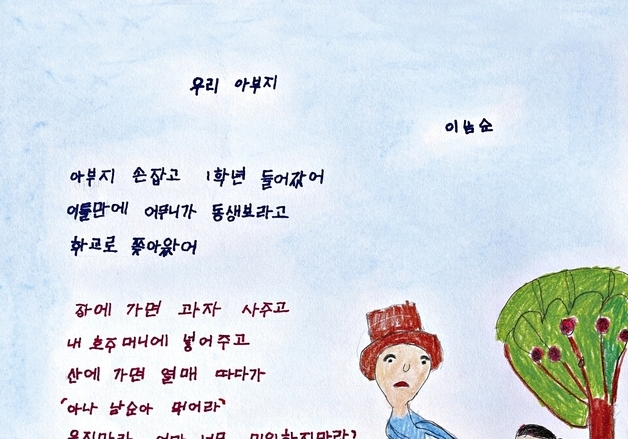 우리 아부지
이남순
아부지 손잡고 1학년 들어갔어
이틀만에 어무니가 동생보라고
학교로 쫓아왔어
장에 가면 과자 사주고
내 호주머니에 넣어주고
산에 가면 열매 따다가
「아나 남순아 먹어라」
울지마라